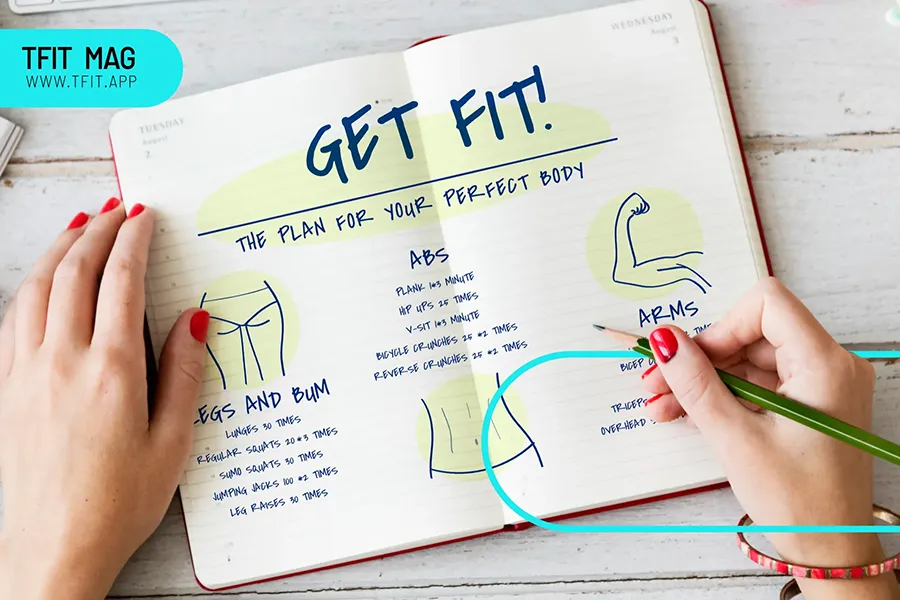 TFIT MAG
WWW.TFIT.APP
TUESDAY
August
2
WEDNESDAY
August
3
GET FIT!
THE PLAN FOR YOUR PERFECT BODY
LEGS AND BUM
LUNGES 30 TIMES
REGULAR SQUATS 20*3 TIMES
SUMO SQUATS 30 TIMES
JUMPING JACKS 100 *2 TIMES
LEG RAISES 30 TIMES
ABS
PLANK 1*3 MINUTE
HIP UPS 25 TIMES
V-SIT 1*3 MINUTE
BICYCLE CRUNCHES 25 *2 TIMES
REVERSE CRUNCHES 25 *2 TIMES
ARMS
BICEP
TRICEPS
OVERHEAD